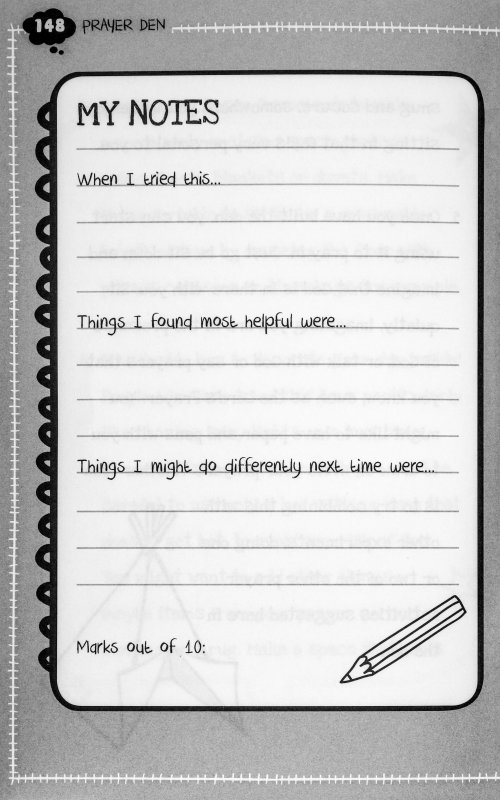 148 PRAYER DEN
MY NOTES
When I tried this...
Things I found most helpful were...
Things I might do differently next time were...
Marks out of 10: